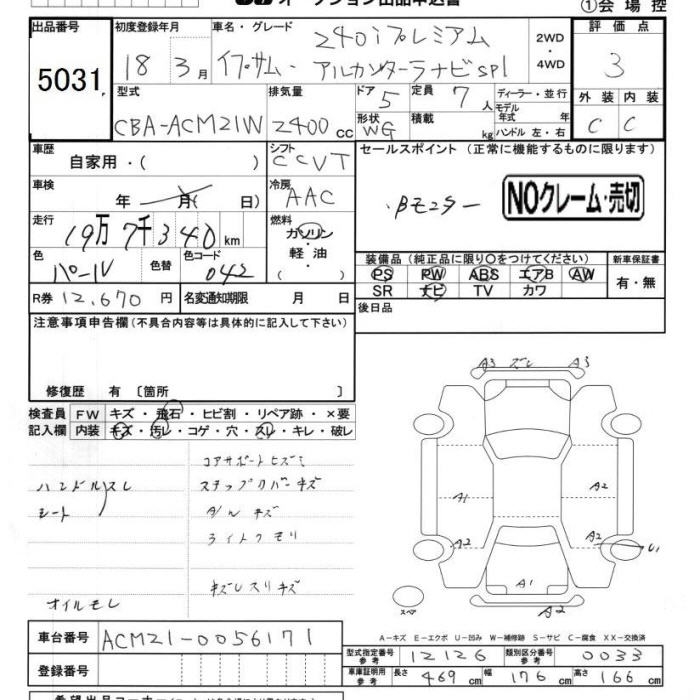 オークション出品申込書 ①会場控
出品番号 5031
初度登録年月 18 3月
車名・グレード イプサム・240iプレミアム アルカンターラナビSP1
2WD ・ 4WD
評価点 3
外装 内装
C C
型式 CBA-ACM21W
排気量 2400cc
ドア 5
形状 WG
定員 7人
積載 kg
ディーラー・並行
モデル年式 年
ハンドル 左・右
車歴 自家用・( )
シフト CCVT
車検 年 月( 日)
冷房 AAC
走行 19万7千340km
燃料 ガソリン・軽油
色 パール
色替
色コード 042
R券 12,670円
名変通知期限 月 日
セールスポイント (正常に機能するものに限ります)
・Bモニター
NOクレーム・売切
装備品(純正品に限り○をつけてください)
PS PW ABS エアB AW
SR ナビ TV カワ
新車保証書 有・無
後日品
注意事項申告欄(不具合内容等は具体的に記入して下さい)
修復歴 有 〔箇所 〕
検査員記入欄
FW キズ・飛石・ヒビ割・リペア跡・×要
内装 キズ・汚レ・コゲ・穴・スレ・キレ・破レ
コアサポートヒズミ
ハンドルスレ ステップカバーキズ
シート A/Wキズ
ライトクモリ
キズUスリキズ
オイルモレ
A3 ズレ A3
A1 A2
A2 A2 U1
A1
スペア A2
A-キズ E-エクボ U-凹み W-補修跡 S-サビ C-腐食 XX-交換済
車台番号 ACM21-0056171
登録番号
型式指定番号参考 12126
類別区分番号参考 0033
車庫証明用参考 長さ 469cm 幅 176cm 高さ 166cm